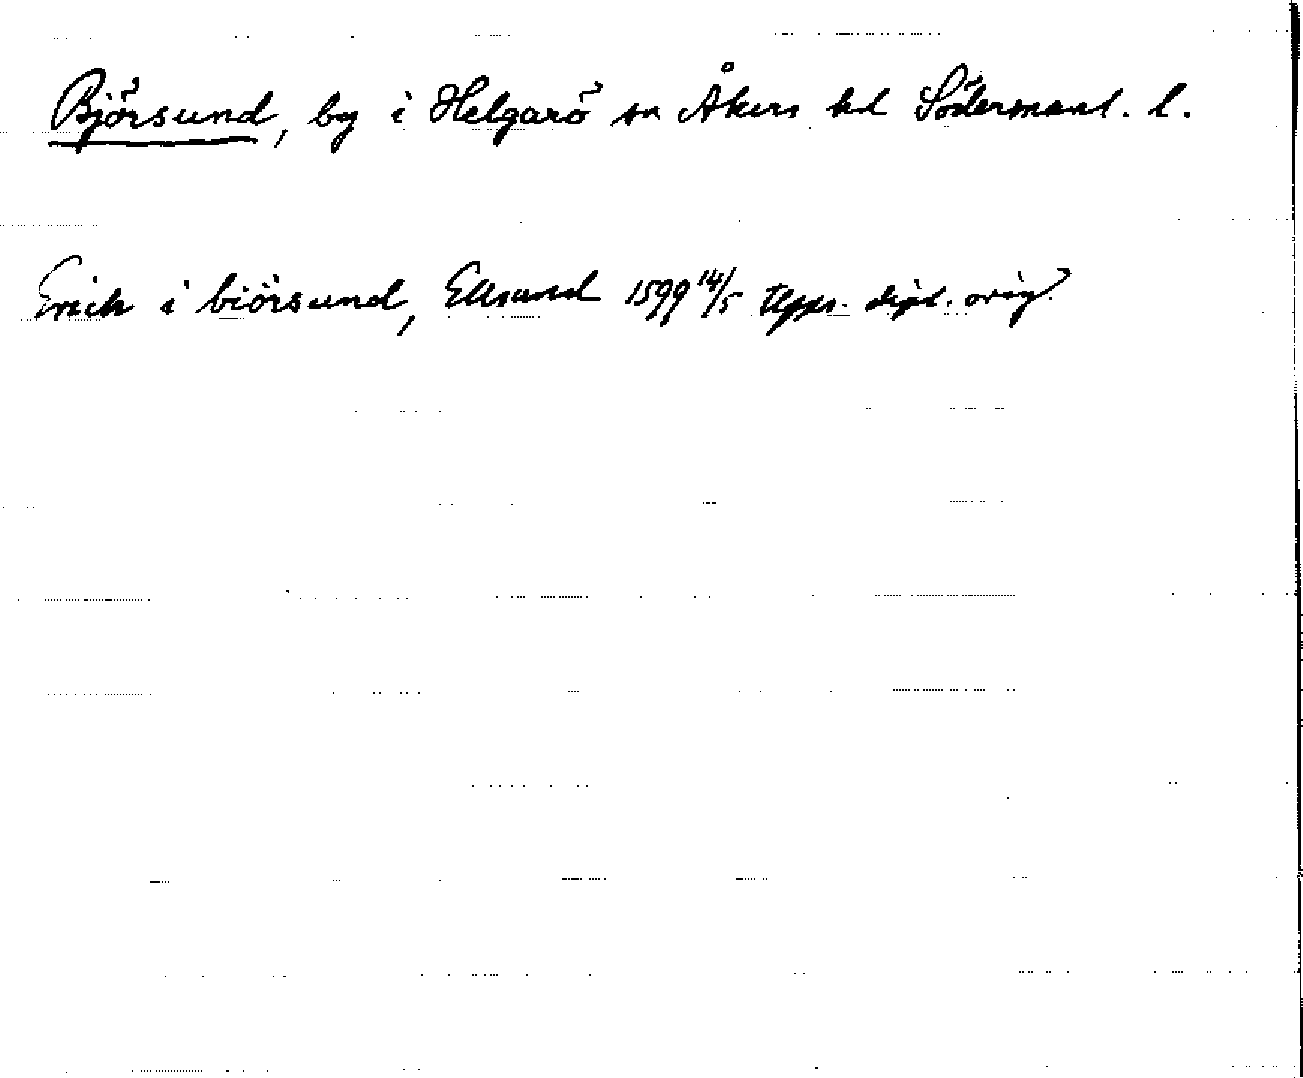 Björsund, by i Helgarö sn Åkers hd Södermanl. l.
Erich i biörsund, Ellsund 1599 14/5 Upps. dipl. orig.